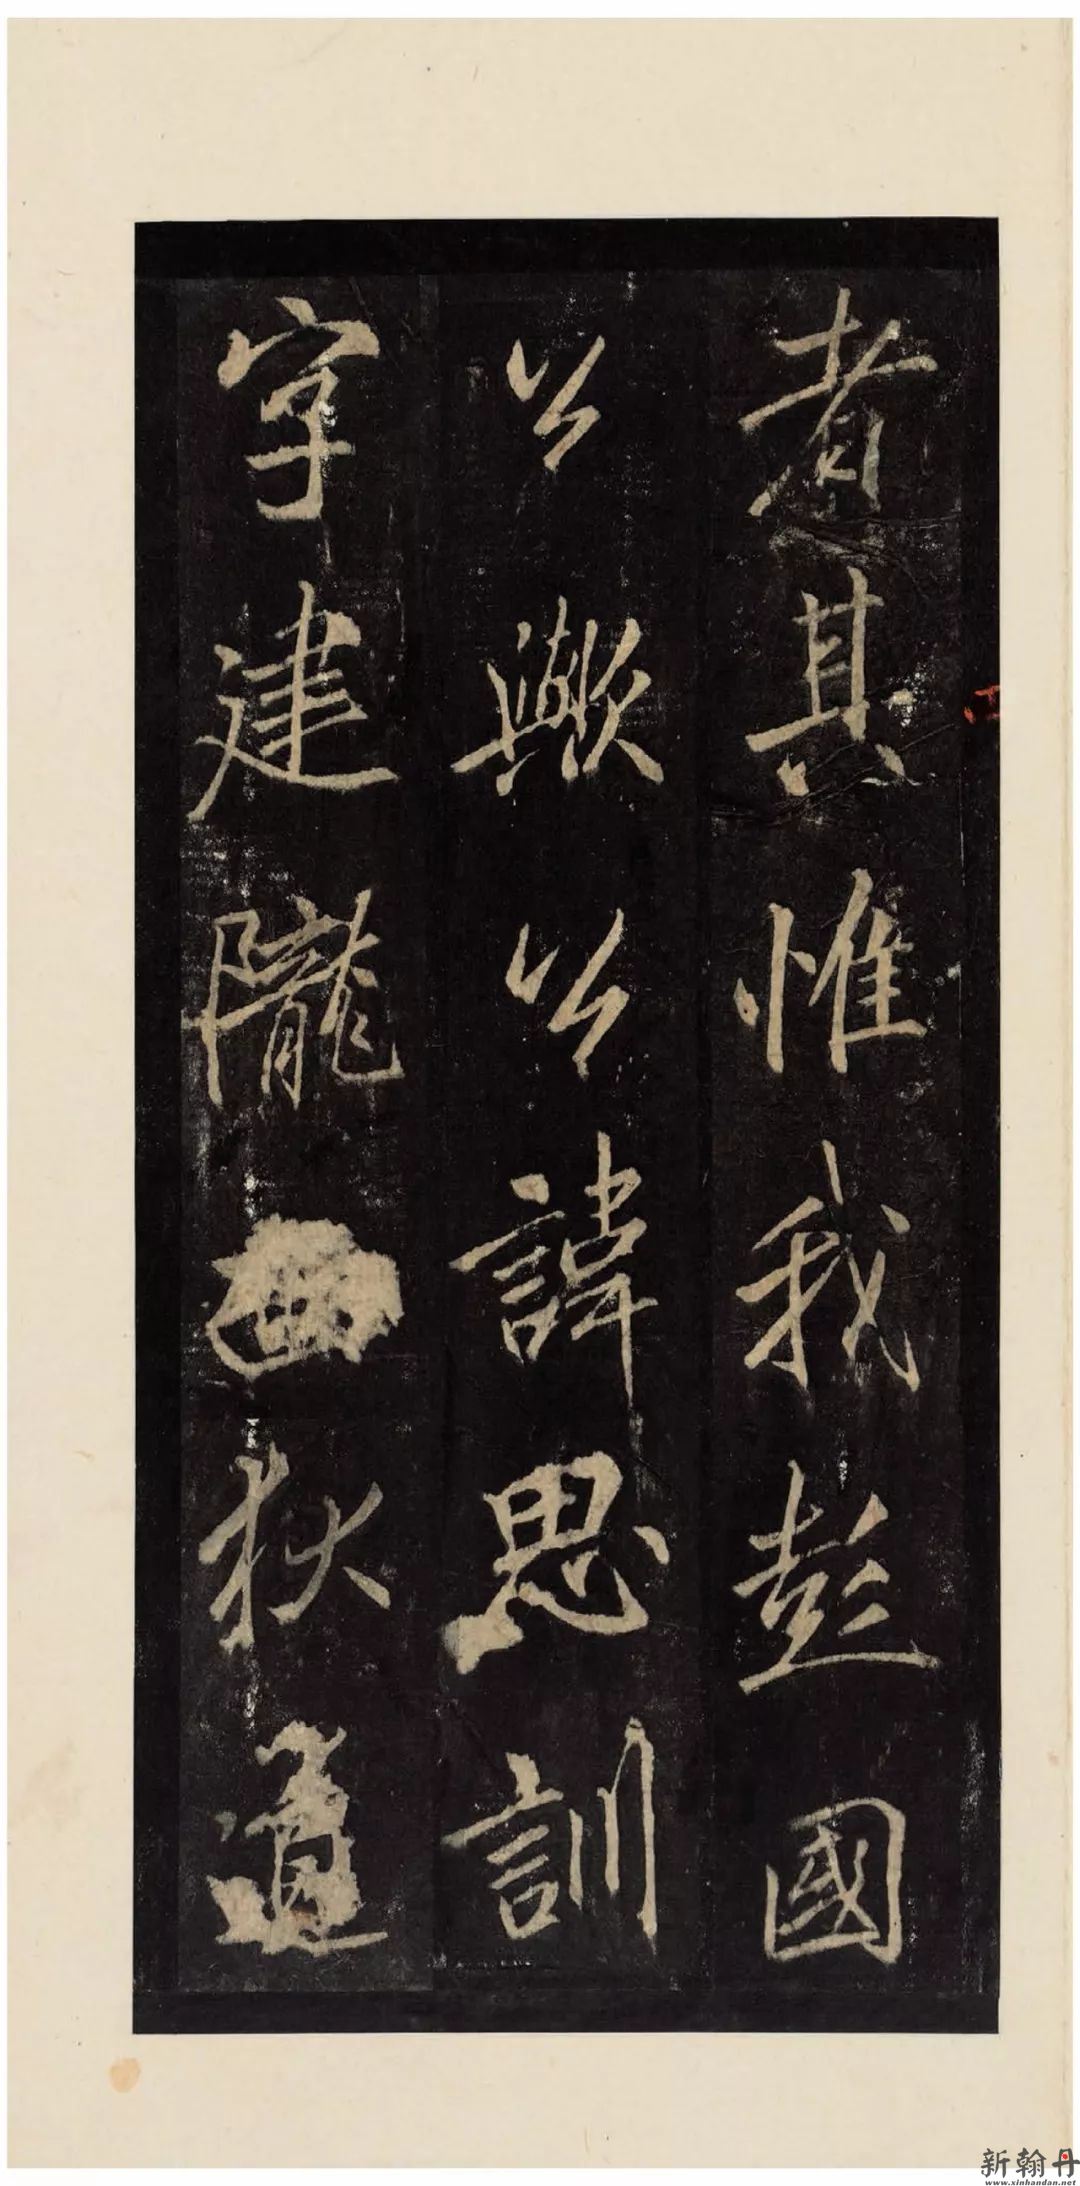 者其惟我彭國
公歟公諱思訓
字建隴西狄道
新翰丹
www.xinhandan.net